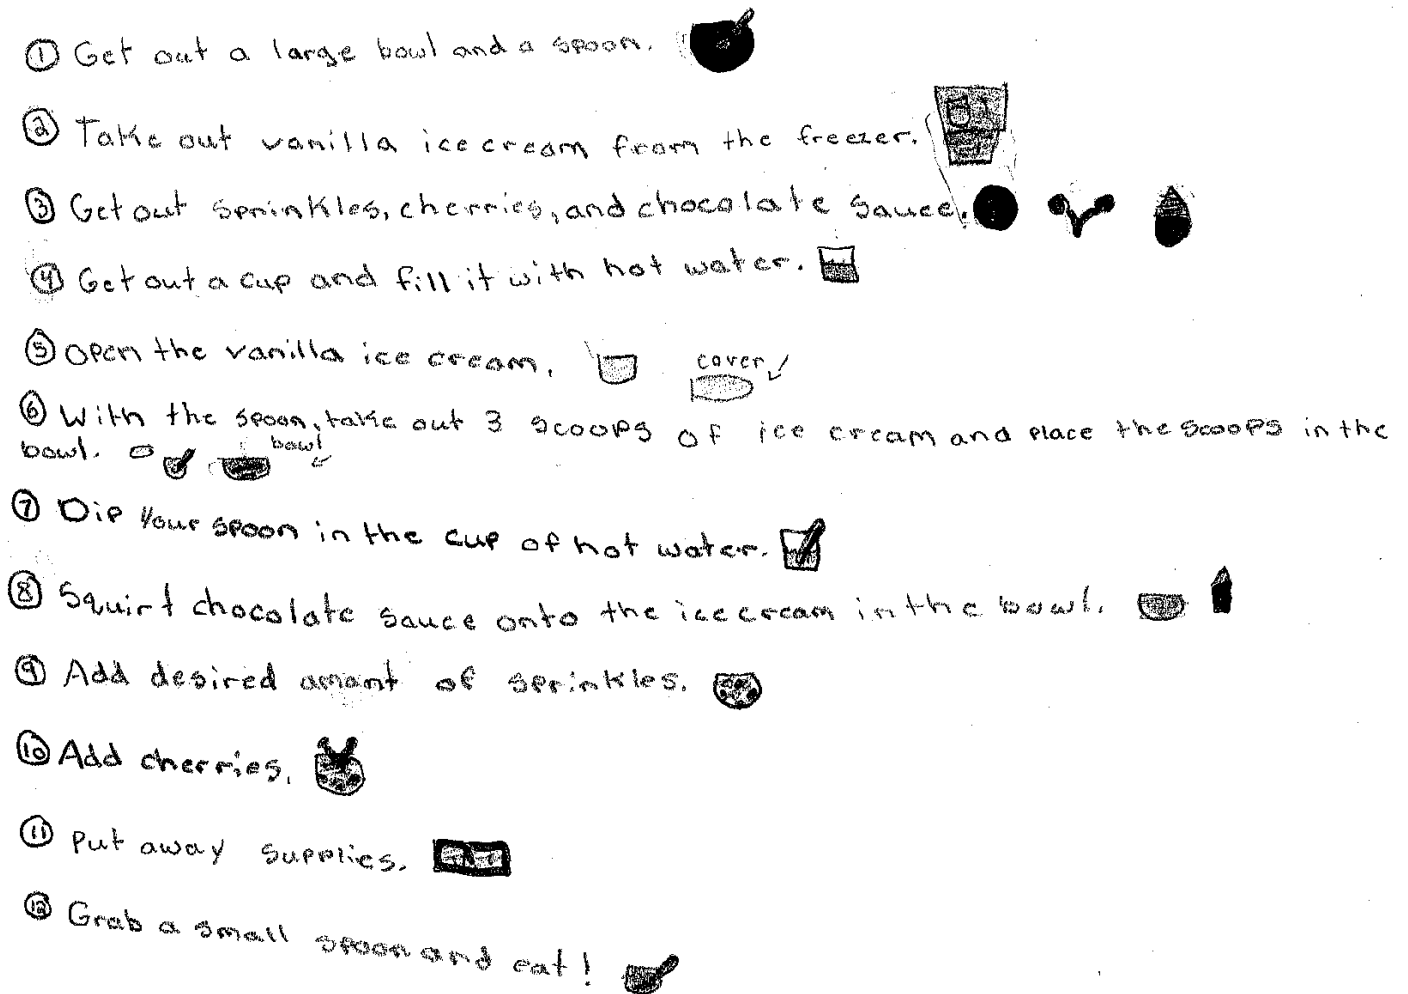 ① Get out a large bowl and a spoon.
② Take out vanilla ice cream from the freezer.
③ Get out sprinkles, cherries, and chocolate sauce.
④ Get out a cup and fill it with hot water.
⑤ Open the vanilla ice cream.
cover
⑥ With the spoon, take out 3 scoops of ice cream and place the scoops in the
bowl.
bowl
⑦ Dip your spoon in the cup of hot water.
⑧ Squirt chocolate sauce onto the ice cream in the bowl.
⑨ Add desired amant of sprinkles.
⑩ Add cherries.
⑪ Put away supplies.
⑫ Grab a small spoon and eat!